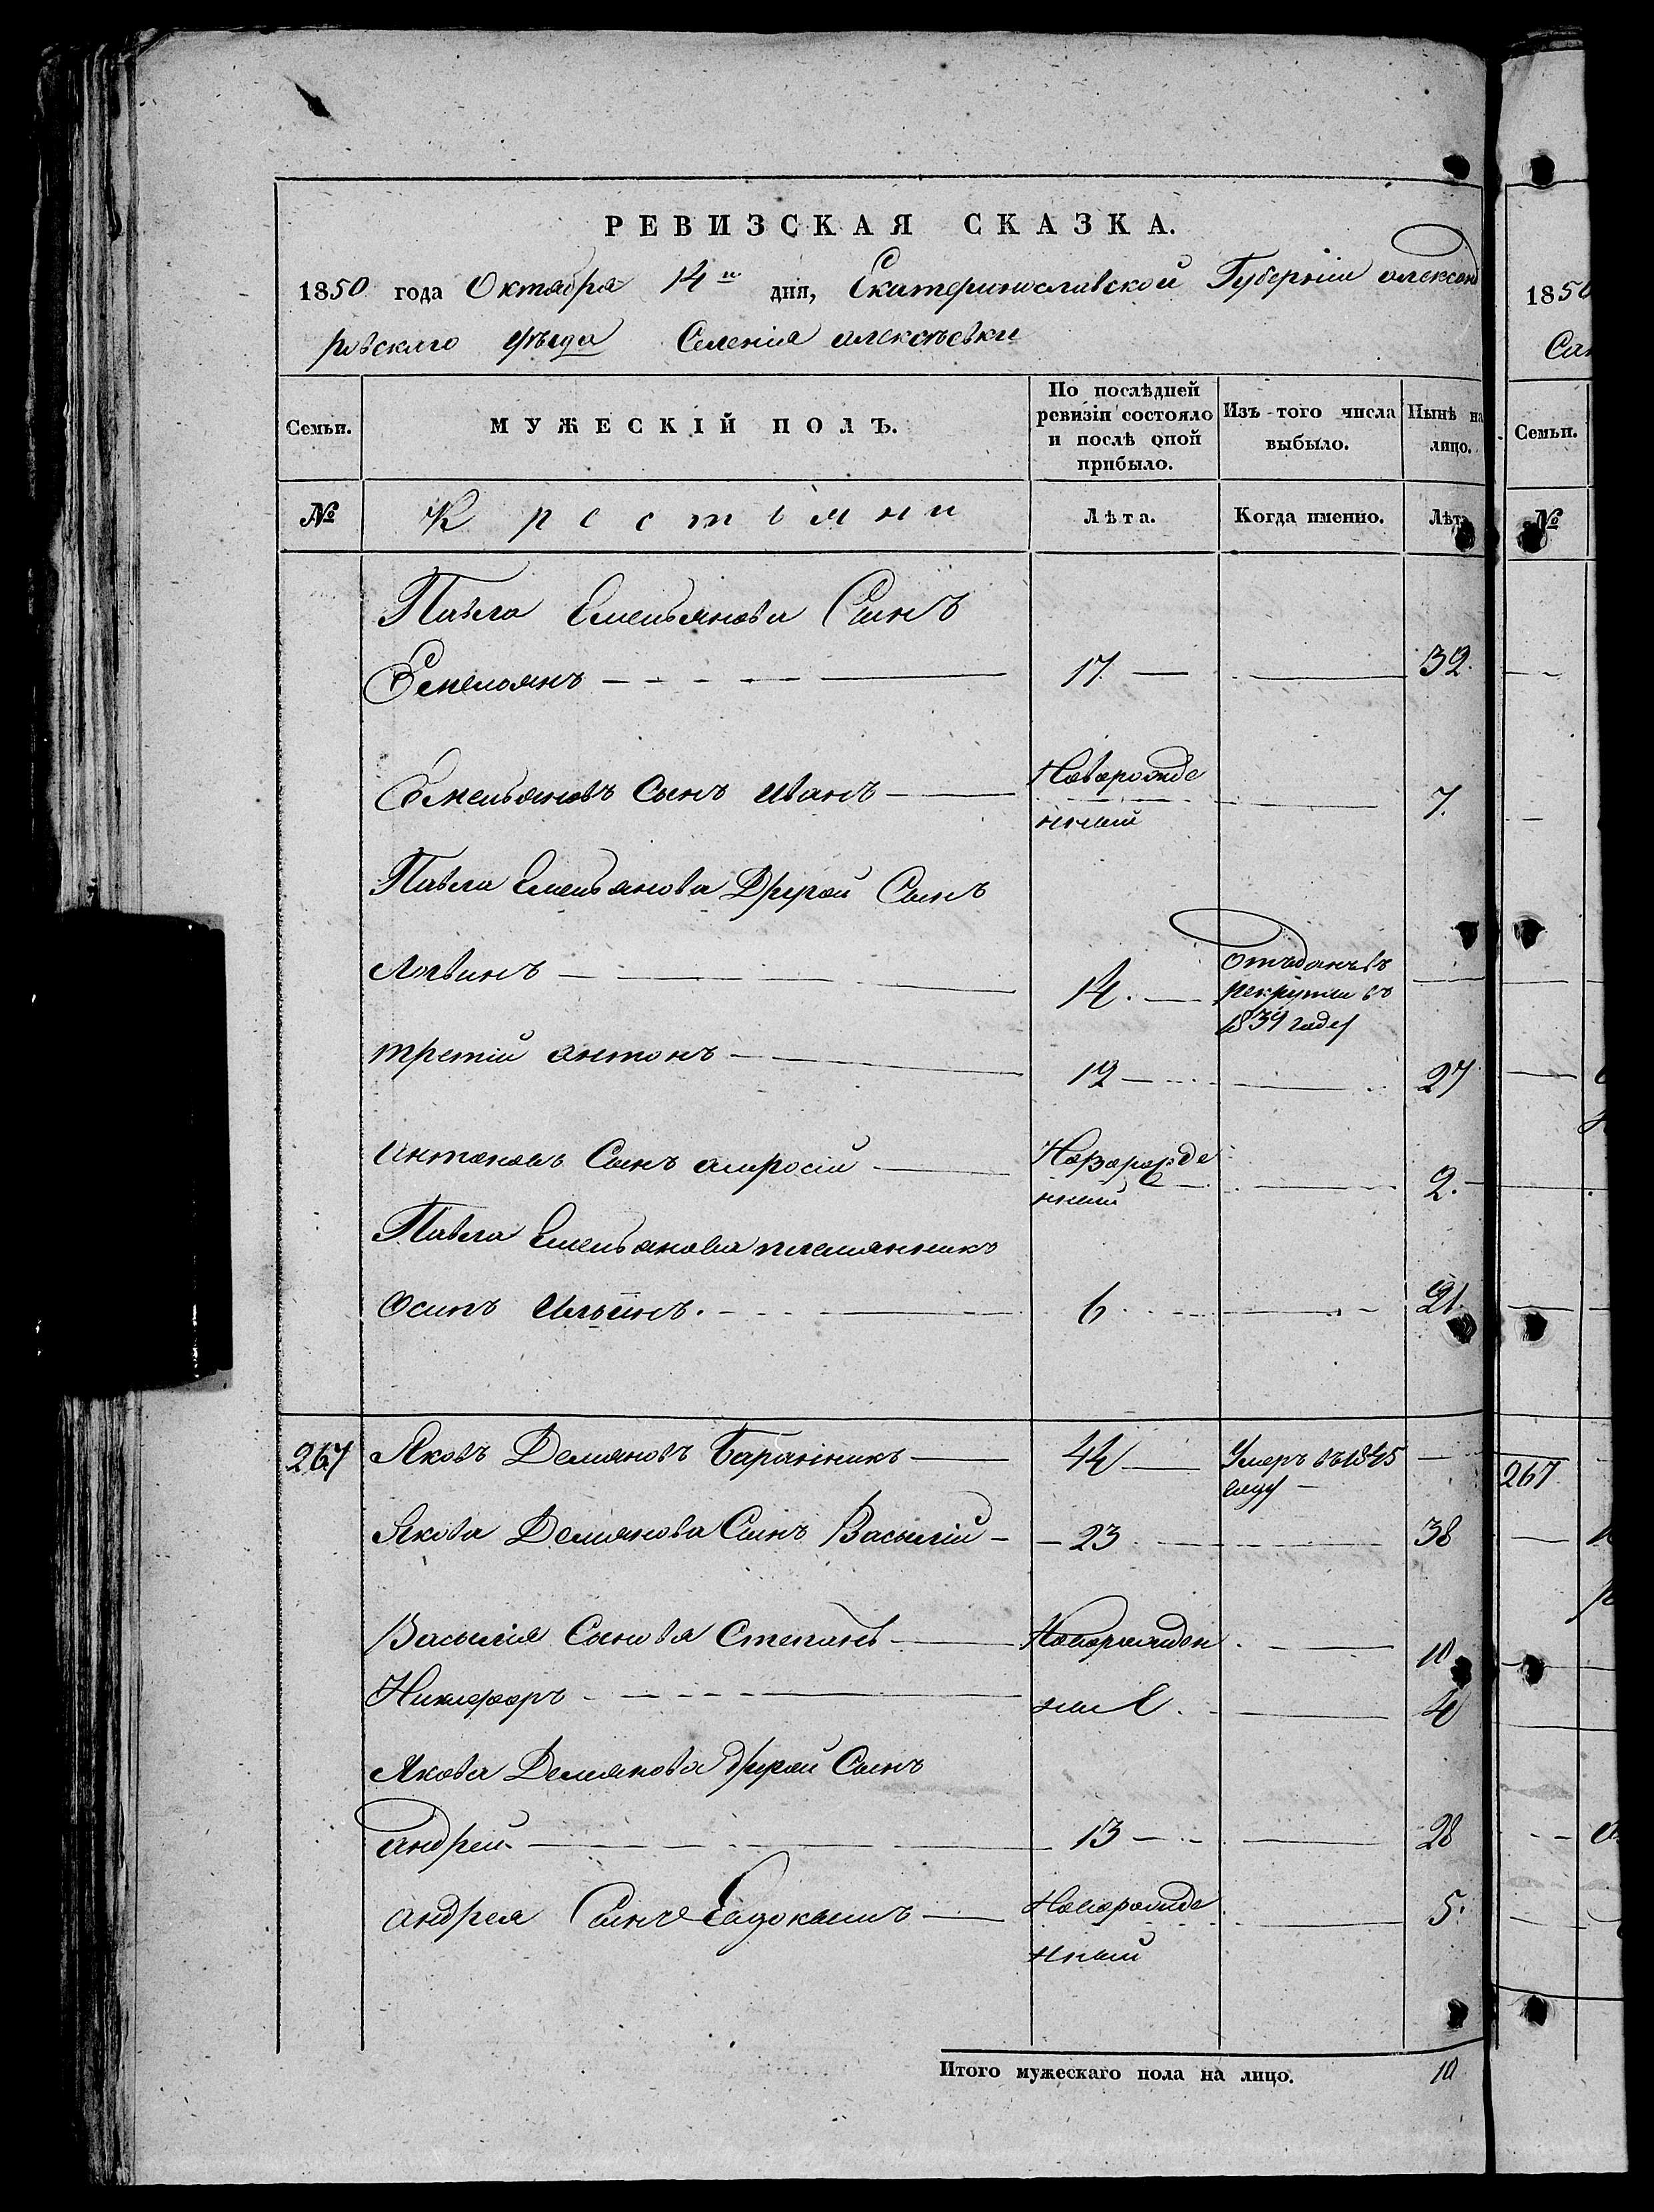 РЕВИЗСКАЯ СКАЗКА.
1850 года Октября 14го дня, Екатеринославской Губерніи александ
ровскаго уѣзда Селенія алексѣевки
Семьи.
МУЖЕСКІЙ ПОЛЪ.
По послѣдней ревизіи состояло и послѣ оной прибыло.
Изъ того числа выбыло.
Нынѣ на лицо.
№ Крестьяни Лѣта. Когда именно. Лѣта
Павла Емельянова Сынъ
Емельянъ 17. 32.
Емельяновъ Сынъ иванъ Новорожде 7.
нный
Павла Емельянова Другой Сынъ
Логвинъ 14. Отъданъ въ
рекруты въ
1839 году
третій антонъ 12 27
антоновъ Сынъ амросій Новорожде 2.
нный
Павла Емельянова племянникъ
Осипъ Ильинъ. 6 21.
267 Яковъ Демяновъ Баранникъ 44 Умеръ въ 1845
году
Якова Демянова Сынъ Василій 23 38
Василія Сыновя Степанъ Новорожден 10
Никифоръ ные 4
Якова Демянова другой Сынъ
андрей 13 28
андрея Сынъ Евдокимъ Новорожде 5.
нный
Итого мужескаго пола на лицо. 10
1850
Семьи.
№
267